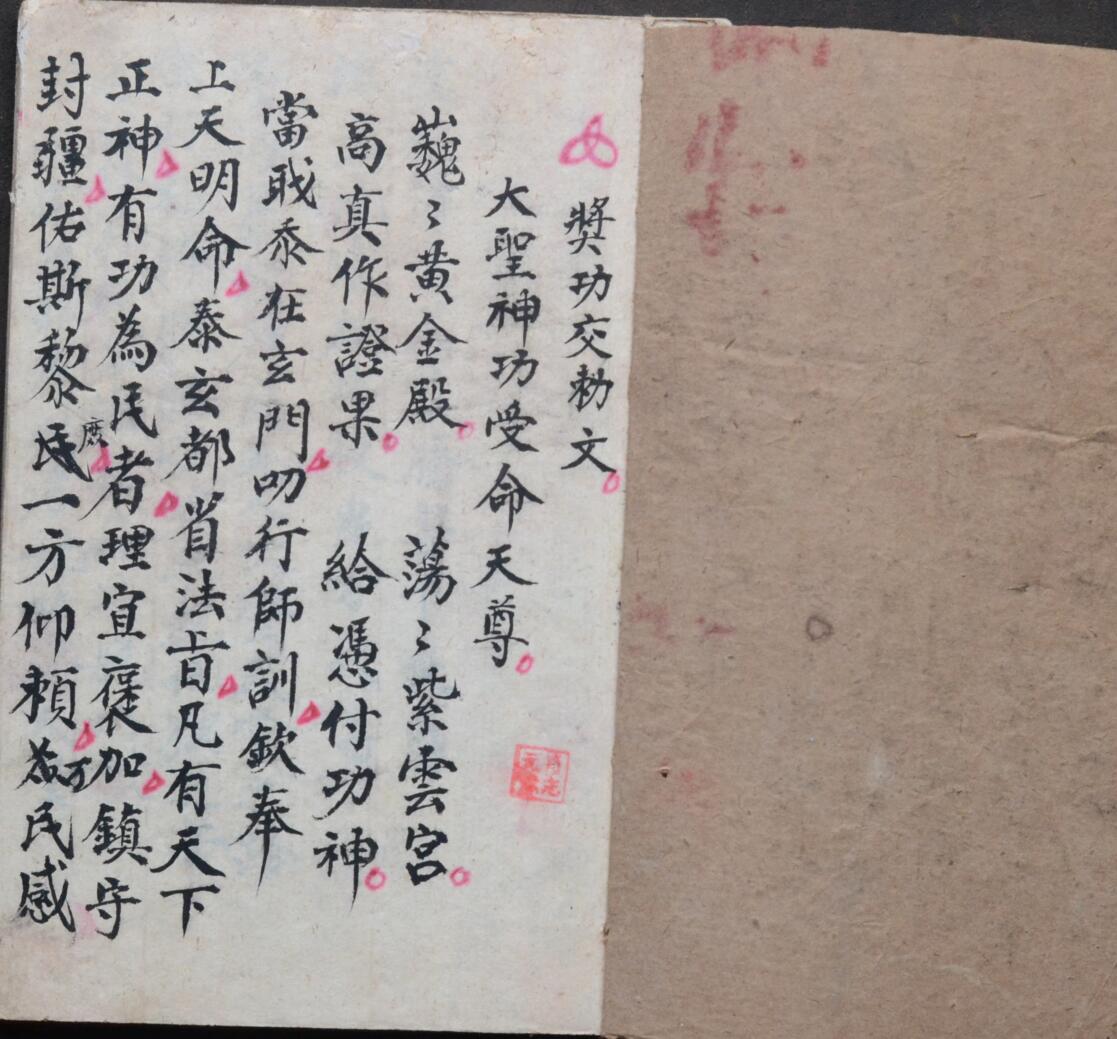 奨功交勅文
大聖神功受命天尊
巍〻黄金殿 蕩〻紫雲宮
高真作證果 給憑付功神
當戝忝在玄門叨行師訓欽奉
上天明命泰玄都省法旨凡有天下
正神有功為民者理宜褒加鎮守
封疆佑斯黎民庶一方仰頼万民感